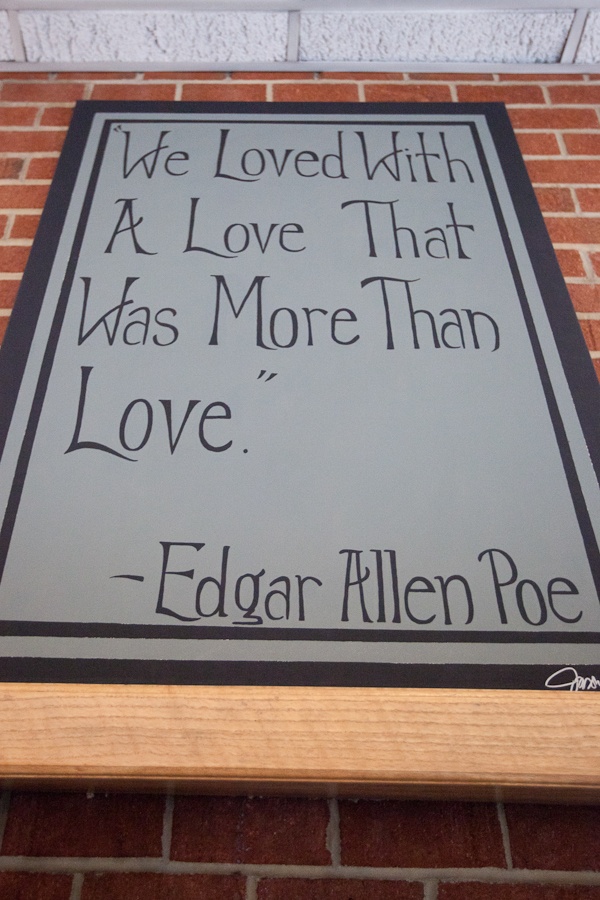 "We Loved With
A Love That
Was More Than
Love."
-Edgar Allen Poe